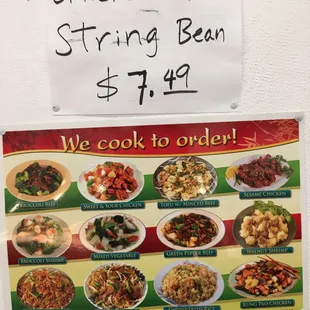 String Bean
$7.49
We cook to order!
Broccoli Beef
Sweet & Sour Chicken
Tofu w/ Minced Beef
Sesame Chicken
Broccoli Shrimp
Mixed Vegetable
Green Pepper Beef
Walnut Shrimp
Kung Pao Chicken